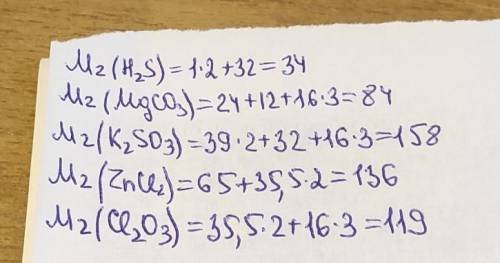 Mr(H₂S)=1·2+32=34
Mr(MgCO₃)=24+12+16·3=84
Mr(K₂SO₃)=39·2+32+16·3=158
Mr(ZnCl₂)=65+35,5·2=136
Mr(Cl₂O₃)=35,5·2+16·3=119